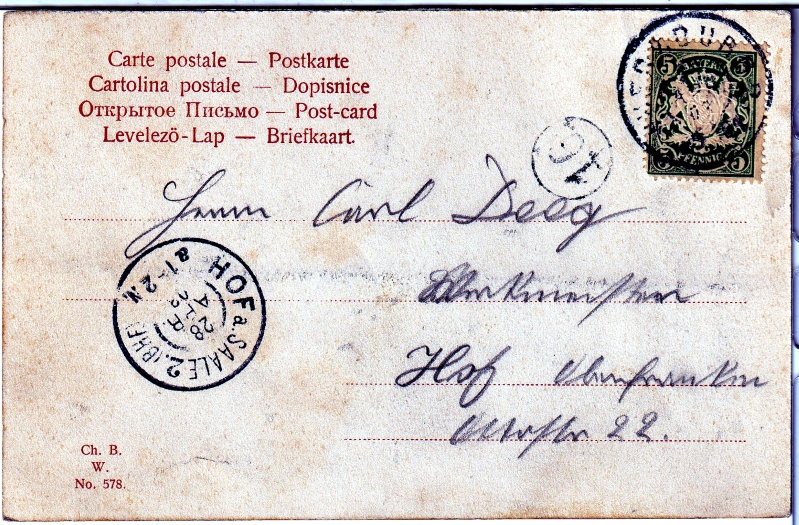 Carte postale — Postkarte
Cartolina postale — Dopisnice
Открытое Письмо — Post-card
Levelező-Lap — Briefkaart.
5 5
BAYERN
PFENNIG
5 5
16
Herrn Carl Deeg
Werkmeister
Hof Oberfranken
22.
HOF a. SAALE 2. (BHF)
1-2 N
28
Ch. B.
W.
No. 578.